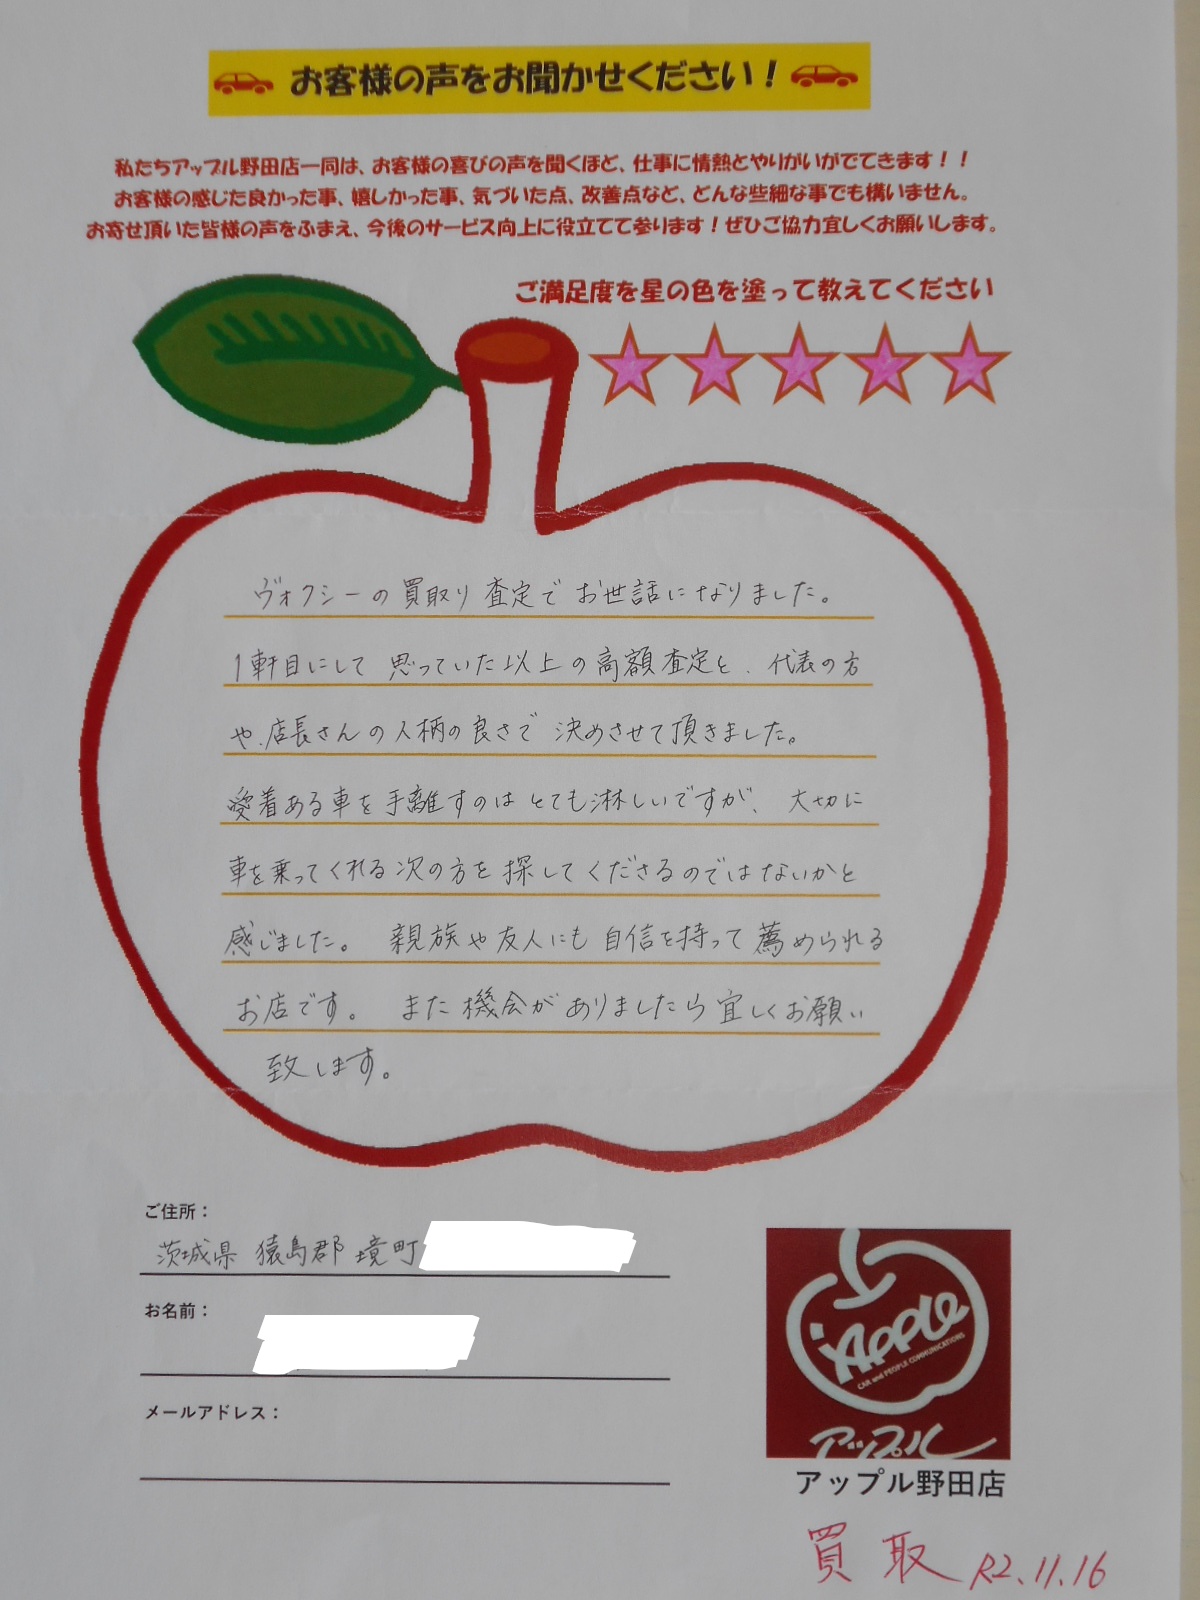 お客様の声をお聞かせください！
私たちアップル野田店一同は、お客様の喜びの声を聞くほど、仕事に情熱とやりがいがでてきます！！
お客様の感じた良かった事、嬉しかった事、気づいた点、改善点など、どんな些細な事でも構いません。
お寄せ頂いた皆様の声をふまえ、今後のサービス向上に役立てて参ります！ぜひご協力宜しくお願いします。
ご満足度を星の色を塗って教えてください
ヴォクシーの買取り査定でお世話になりました。
1軒目にして思っていた以上の高額査定と、代表の方
や、店長さんの人柄の良さで決めさせて頂きました。
愛着ある車を手離すのはとても淋しいですが、大切に
車を乗ってくれる次の方を探してくださるのではないかと
感じました。 親族や友人にも自信を持って薦められる
お店です。 また機会がありましたら宜しくお願い
致します。
ご住所：
茨城県 猿島郡 境町
お名前：
メールアドレス：
Apple
CAR and PEOPLE COMMUNICATIONS
アップル
アップル野田店
買取 R2.11.16